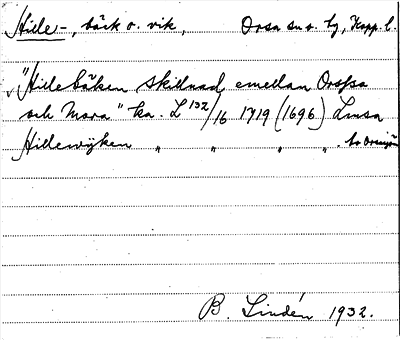 Hille-, bäck o. vik, Orsa sn o. tg, Kopp. l.
"Hillebäken skillnad emellan Orssa
och Mora" ka. L 132/16 1719 (1696) Lmsa
Hillewijken " " " ".
B. Lindén 1932.